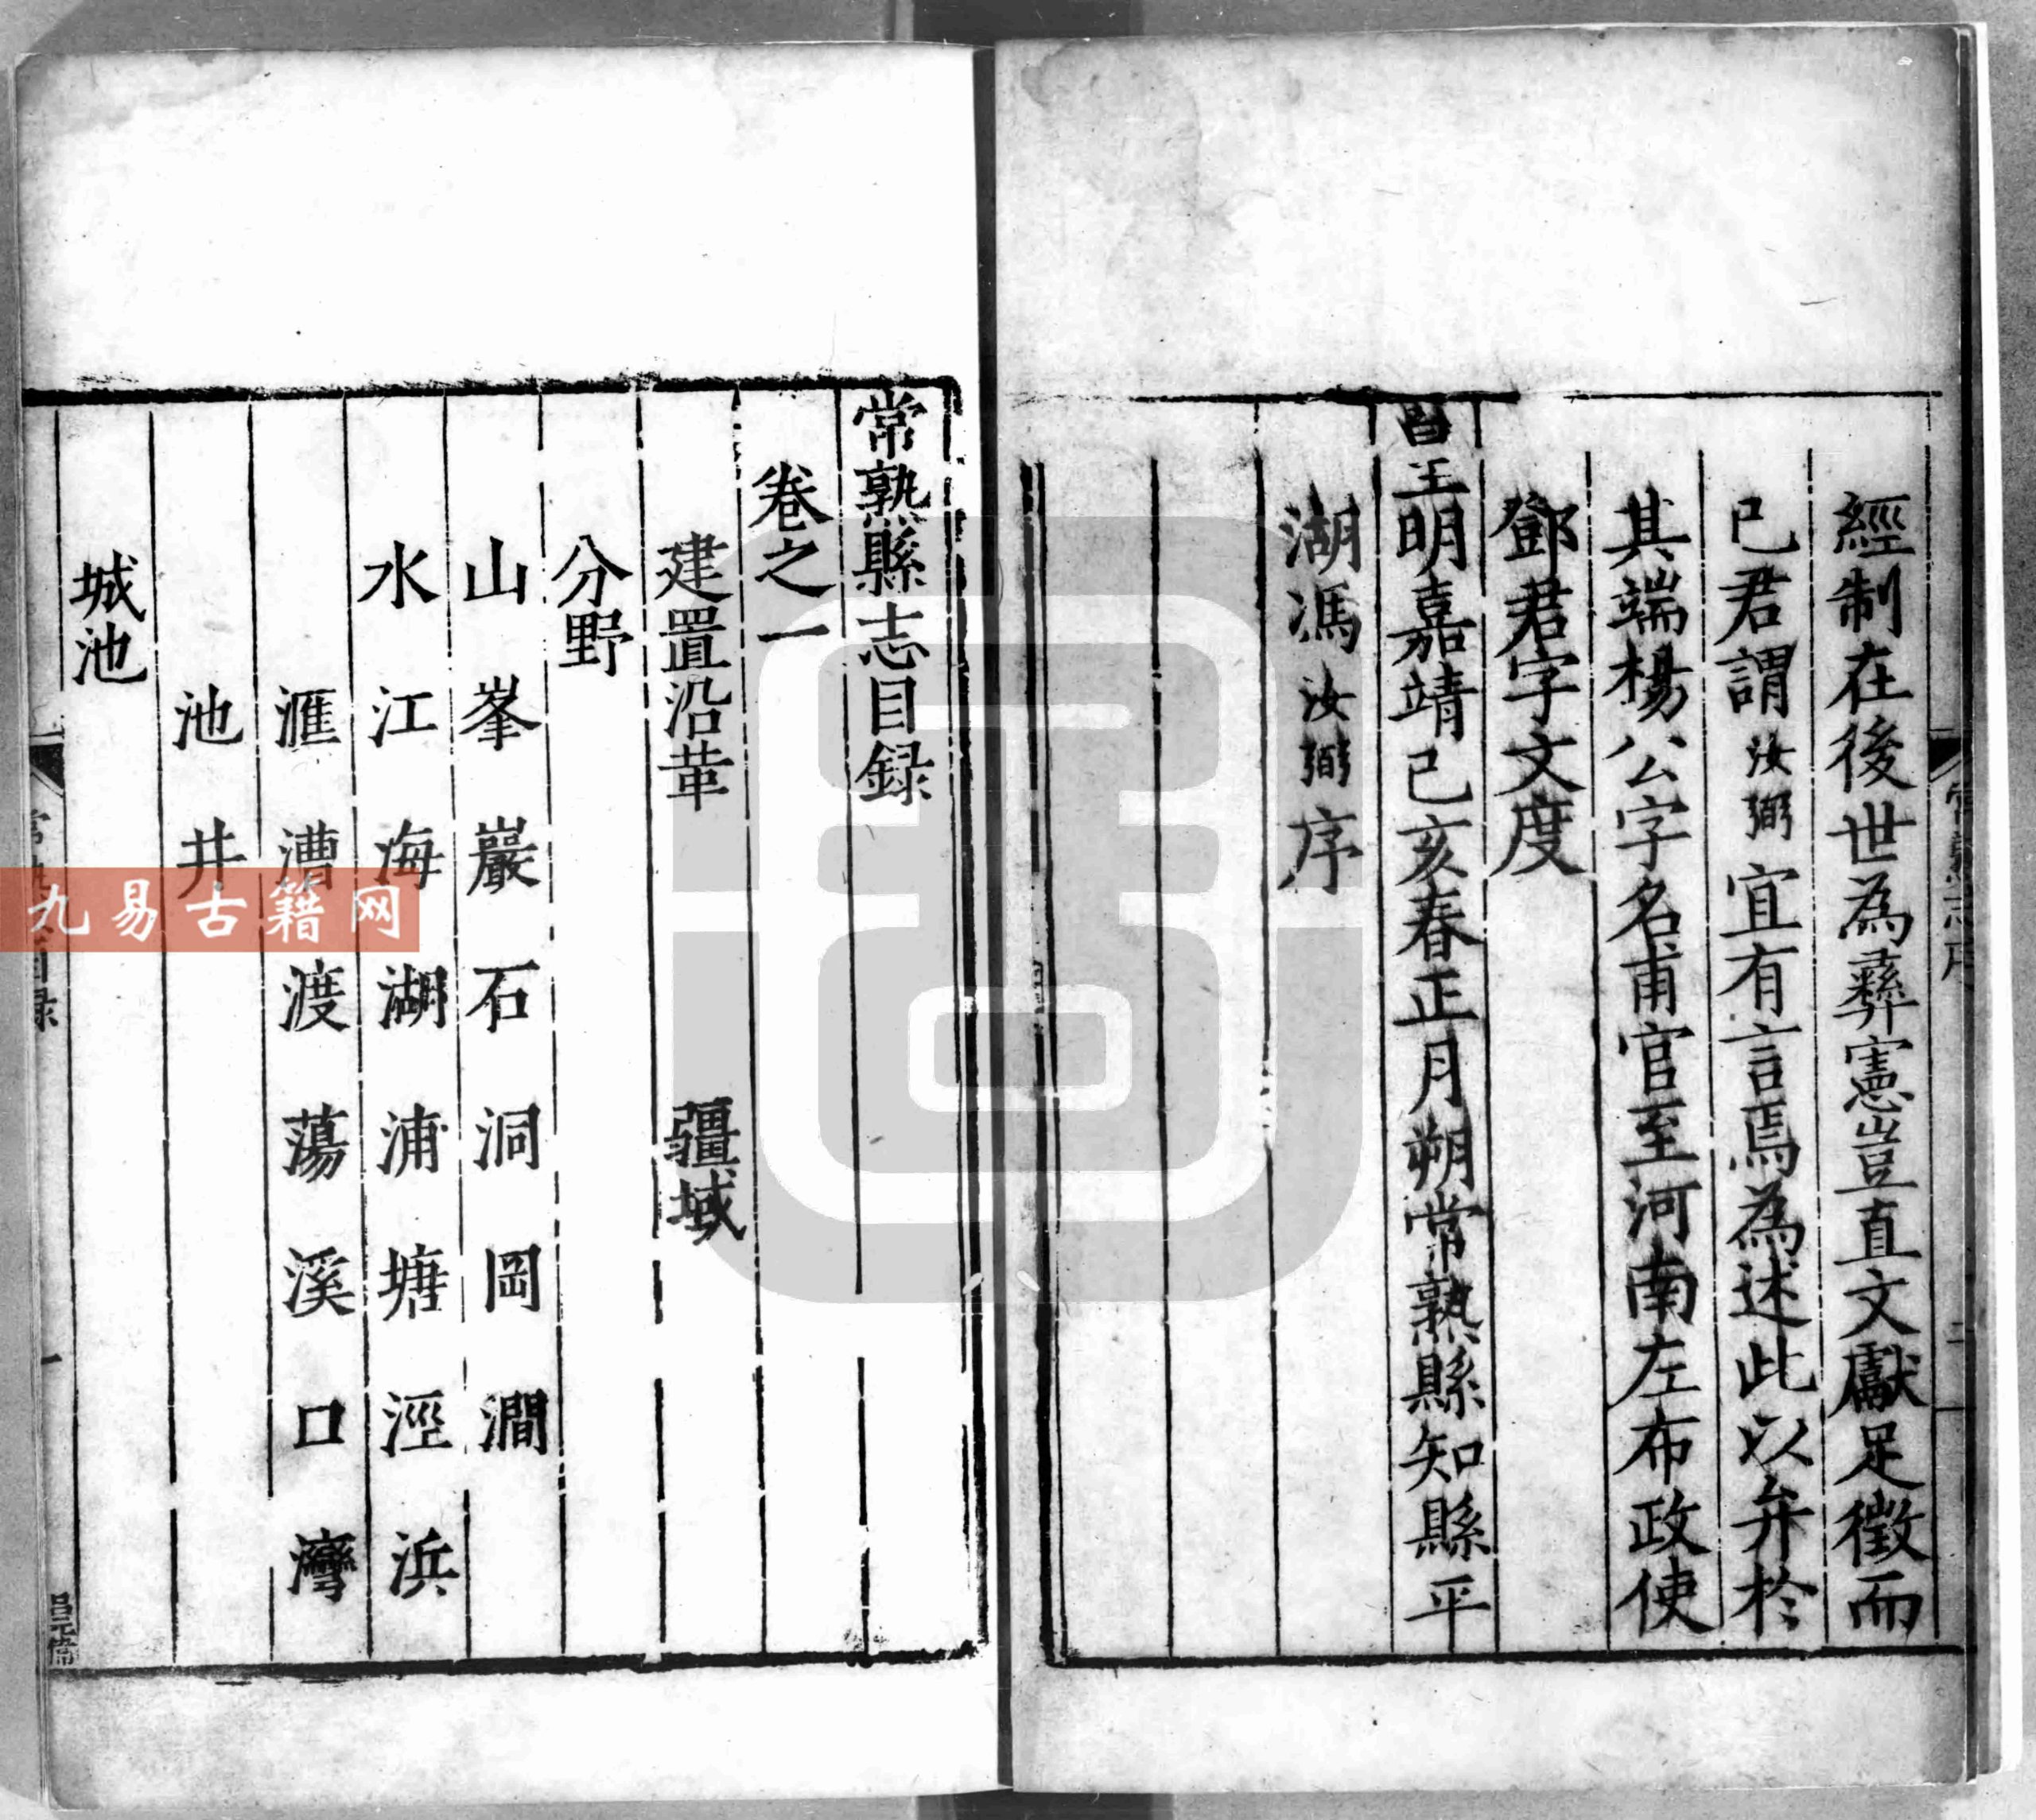 經制在後世為彞憲豈直文獻足徵而
已君謂汝弼宜有言焉為述此以弁於
其端楊公字名甫官至河南左布政使
鄧君字文度
皇明嘉靖己亥春正月朔常熟縣知縣平
湖馮汝弼序
常熟縣志目録
卷之一
建置沿革 疆域
分野
山 峯 巖 石 洞 岡 澗
水 江 海 湖 浦 塘 涇 浜
滙 漕 渡 蕩 溪 口 灣
池 井
城池
九易古籍网